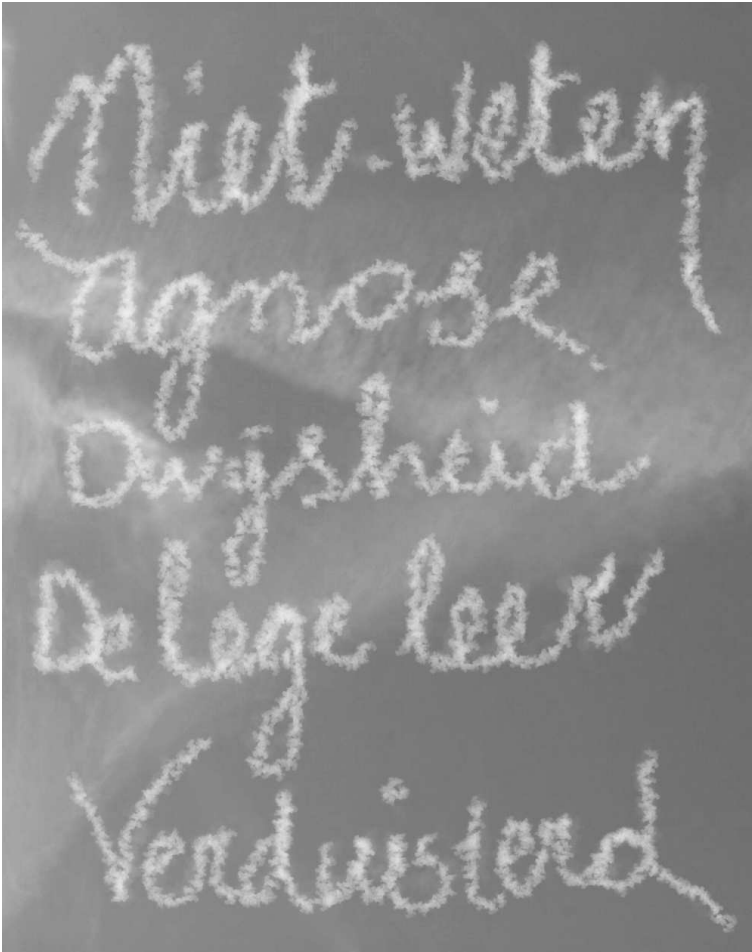 Niet-weten
Agnose
Dwijsheid
De lege leer
Verduisterd